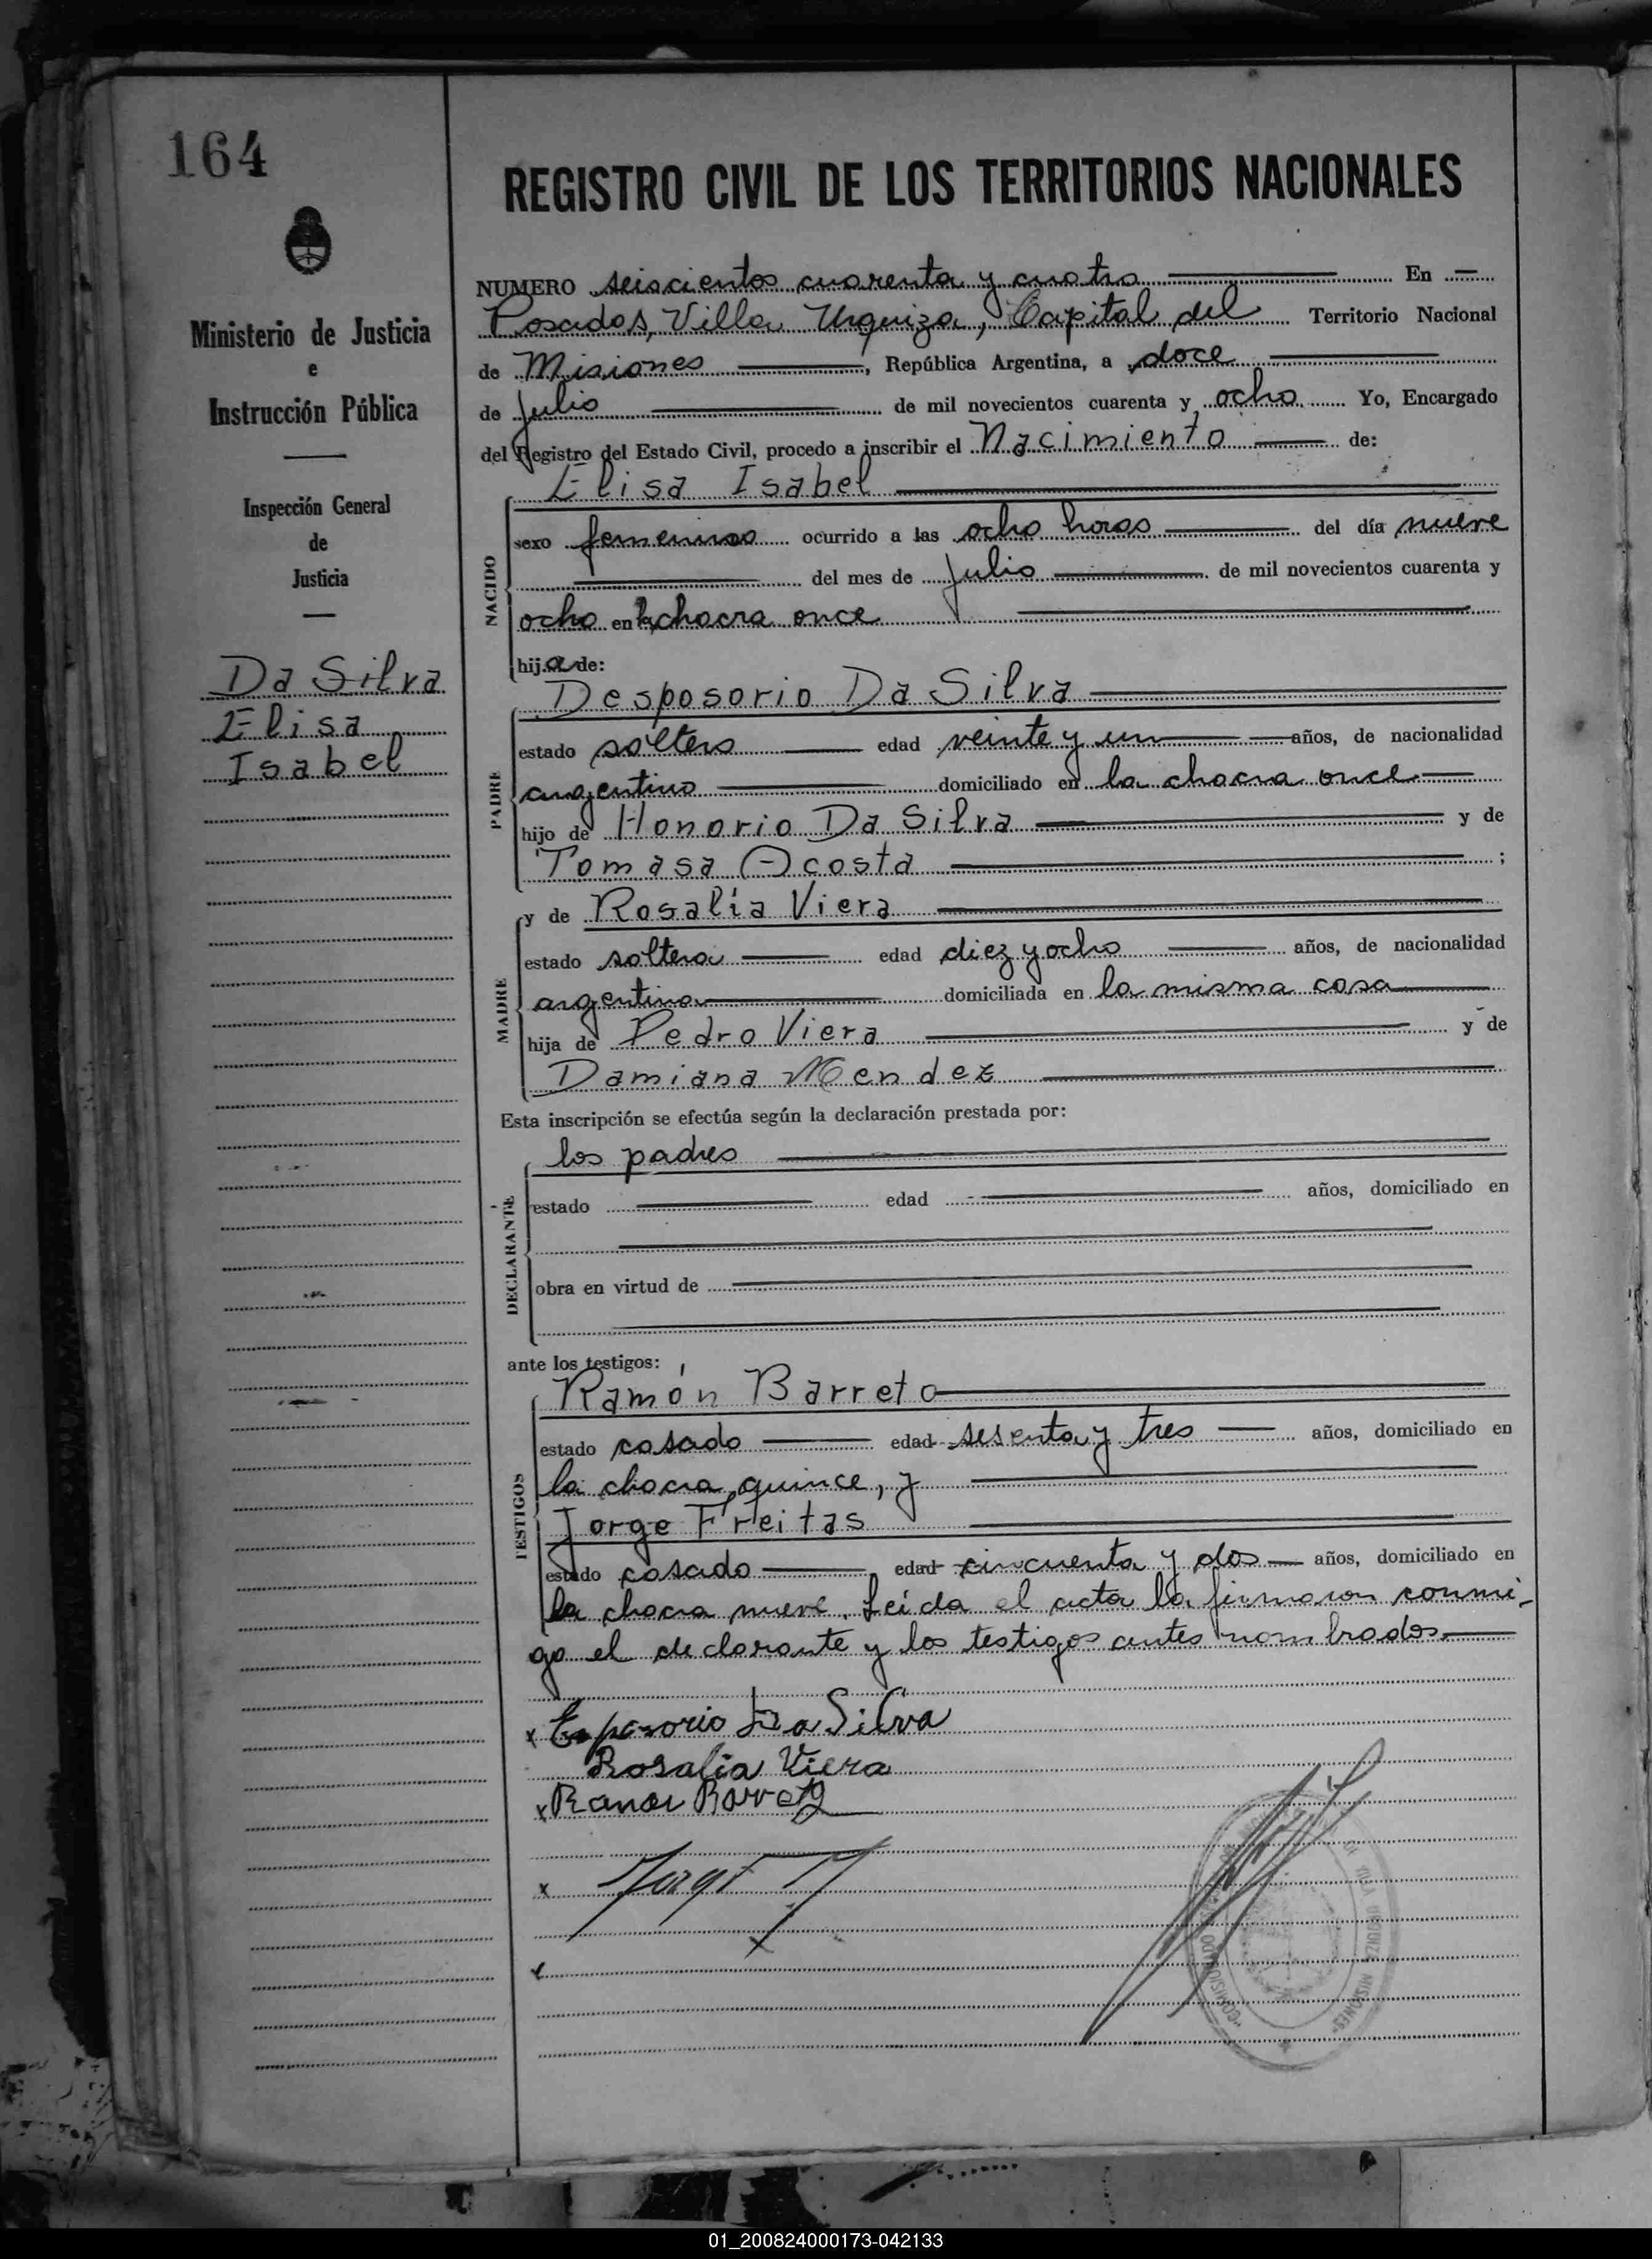 164
Ministerio de Justicia
e
Instrucción Pública
Inspección General
de
Justicia
Da Silva
Elisa
Isabel
REGISTRO CIVIL DE LOS TERRITORIOS NACIONALES
NUMERO seiscientos cuarenta y cuatro En
Posadas, Villa Urquiza, Capital del Territorio Nacional
de Misiones, República Argentina, a doce
de Julio de mil novecientos cuarenta y ocho Yo, Encargado
del Registro del Estado Civil, procedo a inscribir el Nacimiento de:
NACIDO
Elisa Isabel
sexo femenino ocurrido a las ocho horas del día nueve
del mes de Julio de mil novecientos cuarenta y
ocho en la chacra once
hija de:
PADRE
Desposorio Da Silva
estado soltero edad veinte y un años, de nacionalidad
argentino domiciliado en la chacra once
hijo de Honorio Da Silva y de
Tomasa Acosta ;
MADRE
y de Rosalía Viera
estado soltera edad diez y ocho años, de nacionalidad
argentina domiciliada en la misma casa
hija de Pedro Viera y de
Damiana Mendez
Esta inscripción se efectúa según la declaración prestada por:
DECLARANTE
los padres
estado edad años, domiciliado en
obra en virtud de
ante los testigos:
TESTIGOS
Ramón Barreto
estado casado edad sesenta y tres años, domiciliado en
la chacra quince, y
Jorge Freitas
estado casado edad cincuenta y dos años, domiciliado en
la chacra nueve. Leída el acta la firmaron conmi-
go el declarante y los testigos antes nombrados.
x Esposorio Da Silva
Rosalia Viera
x Ramon Barreto
x Jorge
x
VILLA URQUIZA MISIONES
01_200824000173-042133